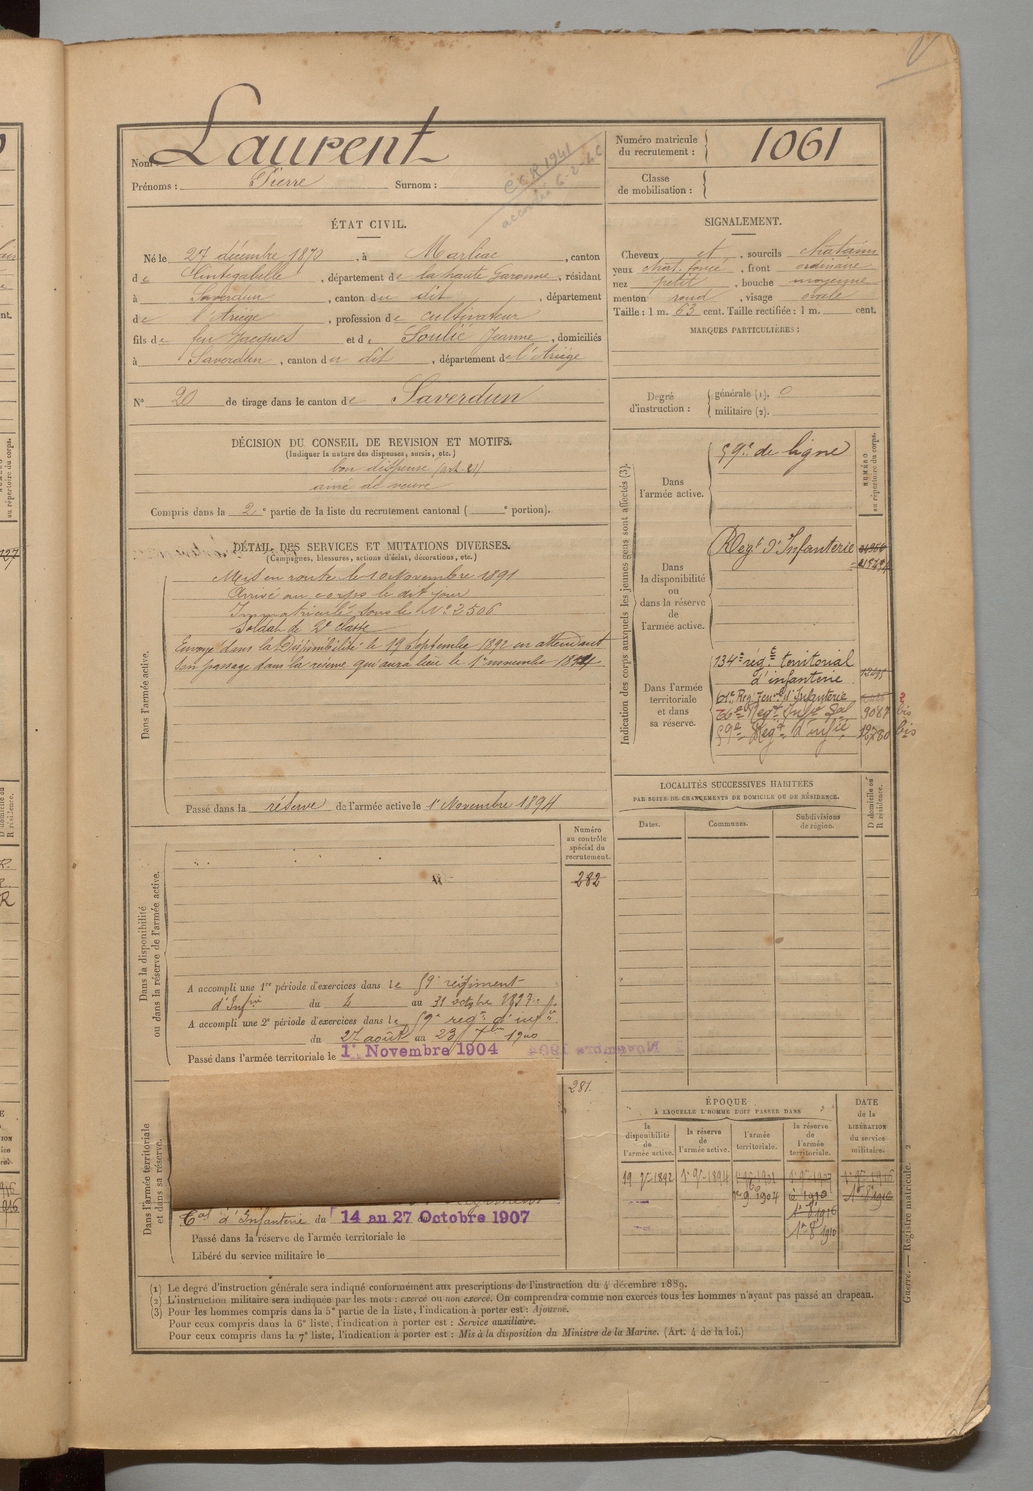 Nom : Laurent
Prénoms : Pierre Surnom :
CCR 1941
accordée 6-2-
Numéro matricule du recrutement : 1061
Classe de mobilisation :
ÉTAT CIVIL.
Né le 27 décembre 1870, à Marliac, canton
de Cintegabelle, département de la haute Garonne, résidant
à Saverdun, canton du dit, département
de l'Ariège, profession de cultivateur
fils de feu Jacques et de Soulié Jeanne, domiciliés
à Saverdun, canton du dit, département de l'Ariège
N° 20 de tirage dans le canton de Saverdun
SIGNALEMENT.
Cheveux et, sourcils châtains
yeux chat. foncé, front ordinaire
nez petit, bouche moyenne
menton rond, visage ovale
Taille : 1 m. 63 cent. Taille rectifiée : 1 m. cent.
MARQUES PARTICULIÈRES :
Degré d'instruction : générale (1). 0
militaire (2).
DÉCISION DU CONSEIL DE REVISION ET MOTIFS.
(Indiquer la nature des dispenses, sursis, etc.)
bon dispensé (art. 21)
ainé de veuve
Compris dans la 2e partie de la liste du recrutement cantonal ( e portion).
DÉTAIL DES SERVICES ET MUTATIONS DIVERSES.
(Campagnes, blessures, actions d'éclat, décorations, etc.)
Dans l'armée active.
Mis en route le 10 Novembre 1891
Arrivé au corps le dit jour
Immatriculé sous le N° 3506
Soldat de 2e classe
Envoyé dans la Disponibilité le 19 Septembre 1892 en attendant
son passage dans la réserve qui aura lieu le 1er novembre 1894
Passé dans la réserve de l'armée active le 1er Novembre 1894
Indication des corps auxquels les jeunes gens sont affectés (3).
NUMÉRO au répertoire du corps.
Dans l'armée active.
59e de ligne
Dans la disponibilité ou dans la réserve de l'armée active.
Regt d'Infanterie
Dans l'armée territoriale et dans sa réserve.
134e rég. territorial
d'infanterie
59e Regt d'infie
9087 bis
LOCALITÉS SUCCESSIVES HABITÉES
PAR SUITE DE CHANGEMENTS DE DOMICILE OU DE RÉSIDENCE.
Dates. Communes. Subdivisions de région. D domicile ou R résidence.
Numéro au contrôle spécial du recrutement.
282
Dans la disponibilité ou dans la réserve de l'armée active.
A accompli une 1re période d'exercices dans le 59e régiment
d'Infrie du 4 au 31 octobre 1897
A accompli une 2e période d'exercices dans le 59e regt d'infrie
du 27 août au 23 7bre 1900
Passé dans l'armée territoriale le 1er Novembre 1904
281
Dans l'armée territoriale et dans sa réserve.
d'Infanterie du 14 au 27 Octobre 1907
Passé dans la réserve de l'armée territoriale le
Libéré du service militaire le
ÉPOQUE
A LAQUELLE L'HOMME DOIT PASSER DANS
la disponibilité de l'armée active. la réserve de l'armée active. l'armée territoriale. la réserve de l'armée territoriale.
DATE de la LIBÉRATION du service militaire.
19 7-1892 1er 9-1894
1er 9 1904
(1) Le degré d'instruction générale sera indiqué conformément aux prescriptions de l'instruction du 4 décembre 1889.
(2) L'instruction militaire sera indiquée par les mots : exercé ou non exercé. On comprendra comme non exercés tous les hommes n'ayant pas passé au drapeau.
(3) Pour les hommes compris dans la 5e partie de la liste, l'indication à porter est : Ajourné.
Pour ceux compris dans la 6e liste, l'indication à porter est : Service auxiliaire.
Pour ceux compris dans la 7e liste, l'indication à porter est : Mis à la disposition du Ministre de la Marine. (Art. 4 de la loi.)
Guerre. — Registre matricule. 2